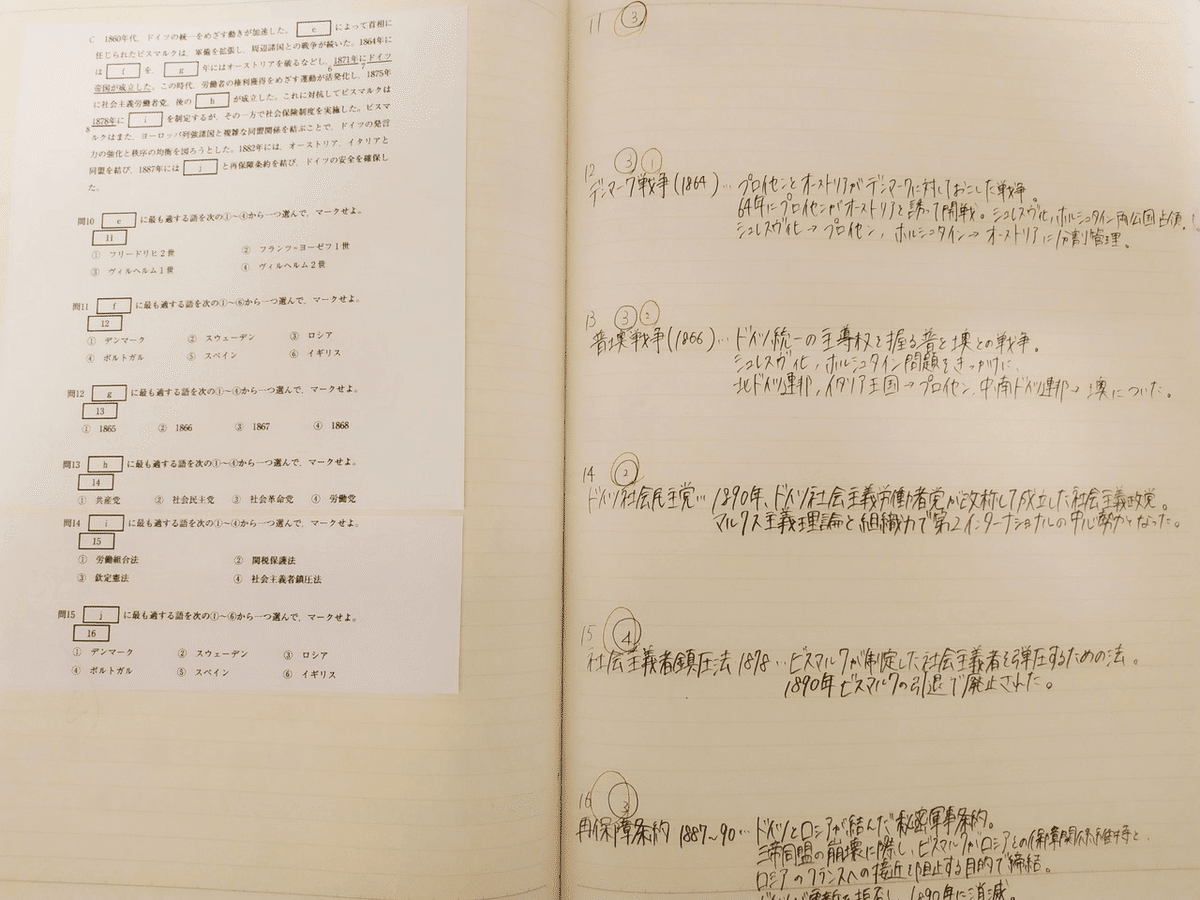 C 1860年代,ドイツの統一をめざす動きが加速した。 e によって首相に
任じられたビスマルクは,軍備を拡張し,周辺諸国との戦争が続いた。1864年に
は f を, g 年にはオーストリアを破るなどし,1871年にドイツ
6 7
帝国が成立した。この時代,労働者の権利獲得をめざす運動が活発化し,1875年
に社会主義労働者党,後の h が成立した。これに対抗してビスマルクは
1878年に i を制定するが,その一方で社会保険制度を実施した。ビスマ
8
ルクはまた,ヨーロッパ列強諸国と複雑な同盟関係を結ぶことで,ドイツの発言
力の強化と秩序の均衡を図ろうとした。1882年には,オーストリア,イタリアと
同盟を結び,1887年には j と再保障条約を結び,ドイツの安全を確保し
た。
問10 e に最も適する語を次の①~④から一つ選んで,マークせよ。
11
① フリードリヒ2世 ② フランツ=ヨーゼフ1世
③ ヴィルヘルム1世 ④ ヴィルヘルム2世
問11 f に最も適する語を次の①~⑥から一つ選んで,マークせよ。
12
① デンマーク ② スウェーデン ③ ロシア
④ ポルトガル ⑤ スペイン ⑥ イギリス
問12 g に最も適する語を次の①~④から一つ選んで,マークせよ。
13
① 1865 ② 1866 ③ 1867 ④ 1868
問13 h に最も適する語を次の①~④から一つ選んで,マークせよ。
14
① 共産党 ② 社会民主党 ③ 社会革命党 ④ 労働党
問14 i に最も適する語を次の①~④から一つ選んで,マークせよ。
15
① 労働組合法 ② 関税保護法
③ 欽定憲法 ④ 社会主義者鎮圧法
問15 j に最も適する語を次の①~⑥から一つ選んで,マークせよ。
16
① デンマーク ② スウェーデン ③ ロシア
④ ポルトガル ⑤ スペイン ⑥ イギリス
11 ③
12 ③ ①
デンマーク戦争(1864)… プロイセンとオーストリアがデンマークに対しておこした戦争。
64年にプロイセンがオーストリアを誘って開戦。シュレスヴィヒ,ホルシュタイン両公国占領。
シュレスヴィヒ→プロイセン,ホルシュタイン→オーストリアに分割管理。
13 ③ ②
普墺戦争(1866)… ドイツ統一の主導権を握る普と墺との戦争。
シュレスヴィヒ,ホルシュタイン問題をきっかけに,
北ドイツ連邦,イタリア王国→プロイセン,中南ドイツ連邦→墺についた。
14 ②
ドイツ社会民主党… 1890年、ドイツ社会主義労働者党が改称して成立した社会主義政党。
マルクス主義理論と組織力で第2インターナショナルの中心勢力となった。
15 ④
社会主義者鎮圧法 1878 … ビスマルクが制定した社会主義者を弾圧するための法。
1890年ビスマルクの引退で廃止された。
16 ③
再保障条約 1887~90… ドイツとロシアが結んだ秘密軍事条約。
三帝同盟の崩壊に際し、ビスマルクがロシアとの保障関係維持と、
ロシアのフランスへの接近を阻止する目的で締結。
ドイツが更新を拒否し、1890年に消滅。